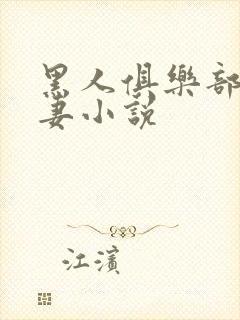 黑人俱樂部
妻小説
江濱